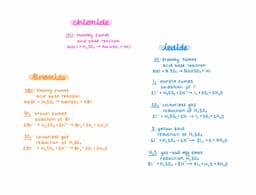 chloride
HCl: steamy fumes
acid base reaction
NaCl + H₂SO₄ → NaHSO₄ + HCl
Bromide
HBr: steamy fumes
acid base reaction
NaBr + H₂SO₄ → NaHSO₄ + HBr
Br₂: brown fumes
oxidation of Br⁻
2Br⁻ + H₂SO₄ + 2H⁺ → Br₂ + SO₂ + 2H₂O
SO₂: colourless gas
reduction of H₂SO₄
2Br⁻ + H₂SO₄ + 2H⁺ → Br₂ + SO₂ + 2H₂O
iodide
HI: steamy fumes
acid base reaction
NaI + H₂SO₄ → NaHSO₄ + HI
I₂: purple fumes
oxidation of I⁻
2I⁻ + H₂SO₄ + 2H⁺ → I₂ + SO₂ + 2H₂O
SO₂: colourless gas
reduction of H₂SO₄
2I⁻ + H₂SO₄ + 2H⁺ → I₂ + SO₂ + 2H₂O
S: yellow solid
reduction of H₂SO₄
6I⁻ + H₂SO₄ + 6H⁺ → 3I₂ + S + 4H₂O
H₂S: gas - bad egg smell
reduction H₂SO₄
8I⁻ + H₂SO₄ + 8H⁺ → 4I₂ + H₂S + 4H₂O